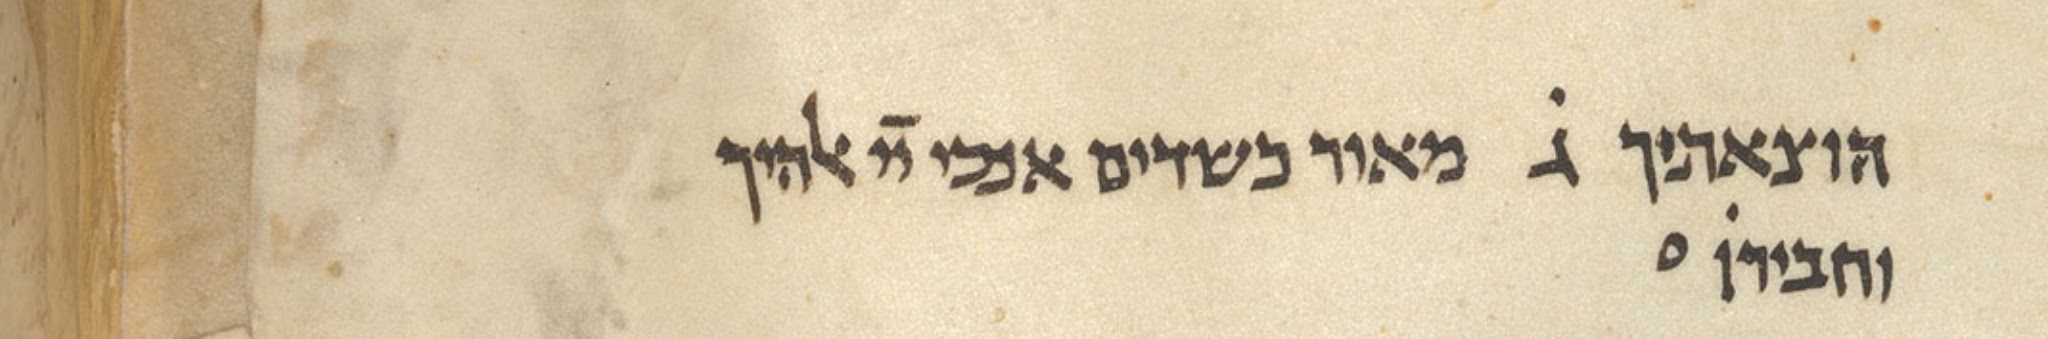 הוצאתיך גׄ מאור כשדים אנכי יי אלהיך
וחבירוׄ ס